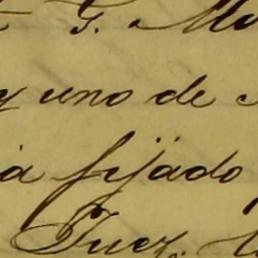 G.
y uno de
fijado
Juez.